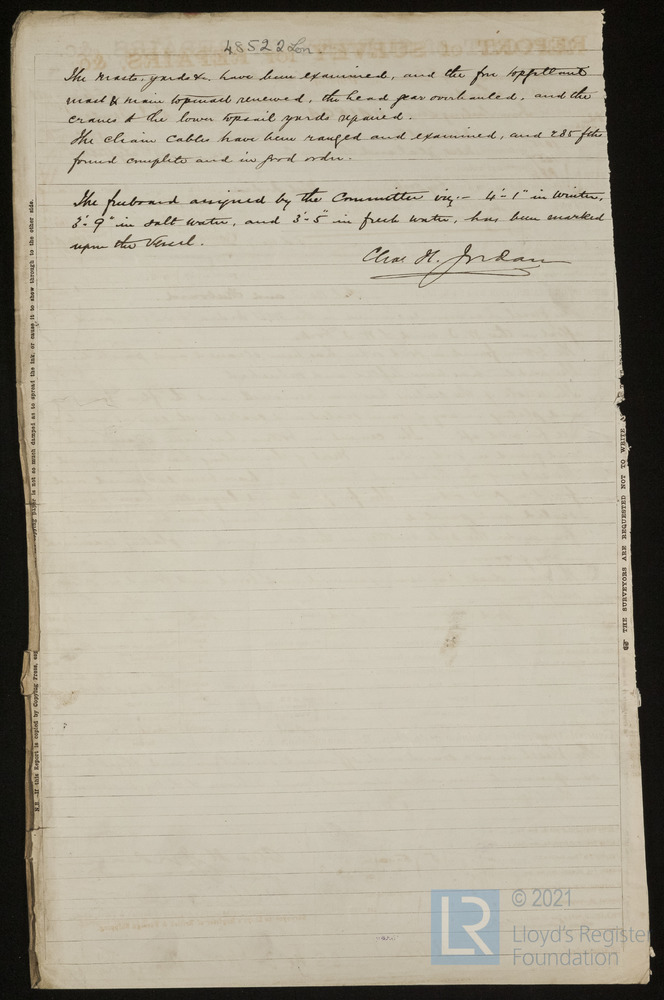 48522 Lon
The masts, yards &c, have been examined, and the fore topgallant
mast & main topmast renewed, the head gear overhauled, and the
cranes to the lower topsail yards repaired.
The chain cables have been ranged and examined, and 285 fths
found complete and in good order.
The freeboard assigned by the Committee viz:- 4'-1" in winter,
3'-9" in salt water, and 3'-5" in fresh water, has been marked
upon the Vessel.
Chas H. Jordan
N.B.-If this Report is copied by Copying Press,
Copying Paper is not so much damped as to spread the ink, or cause it to show through to the other side.
THE SURVEYORS ARE REQUESTED NOT TO WRITE
LR
© 2021
Lloyd's Register
Foundation